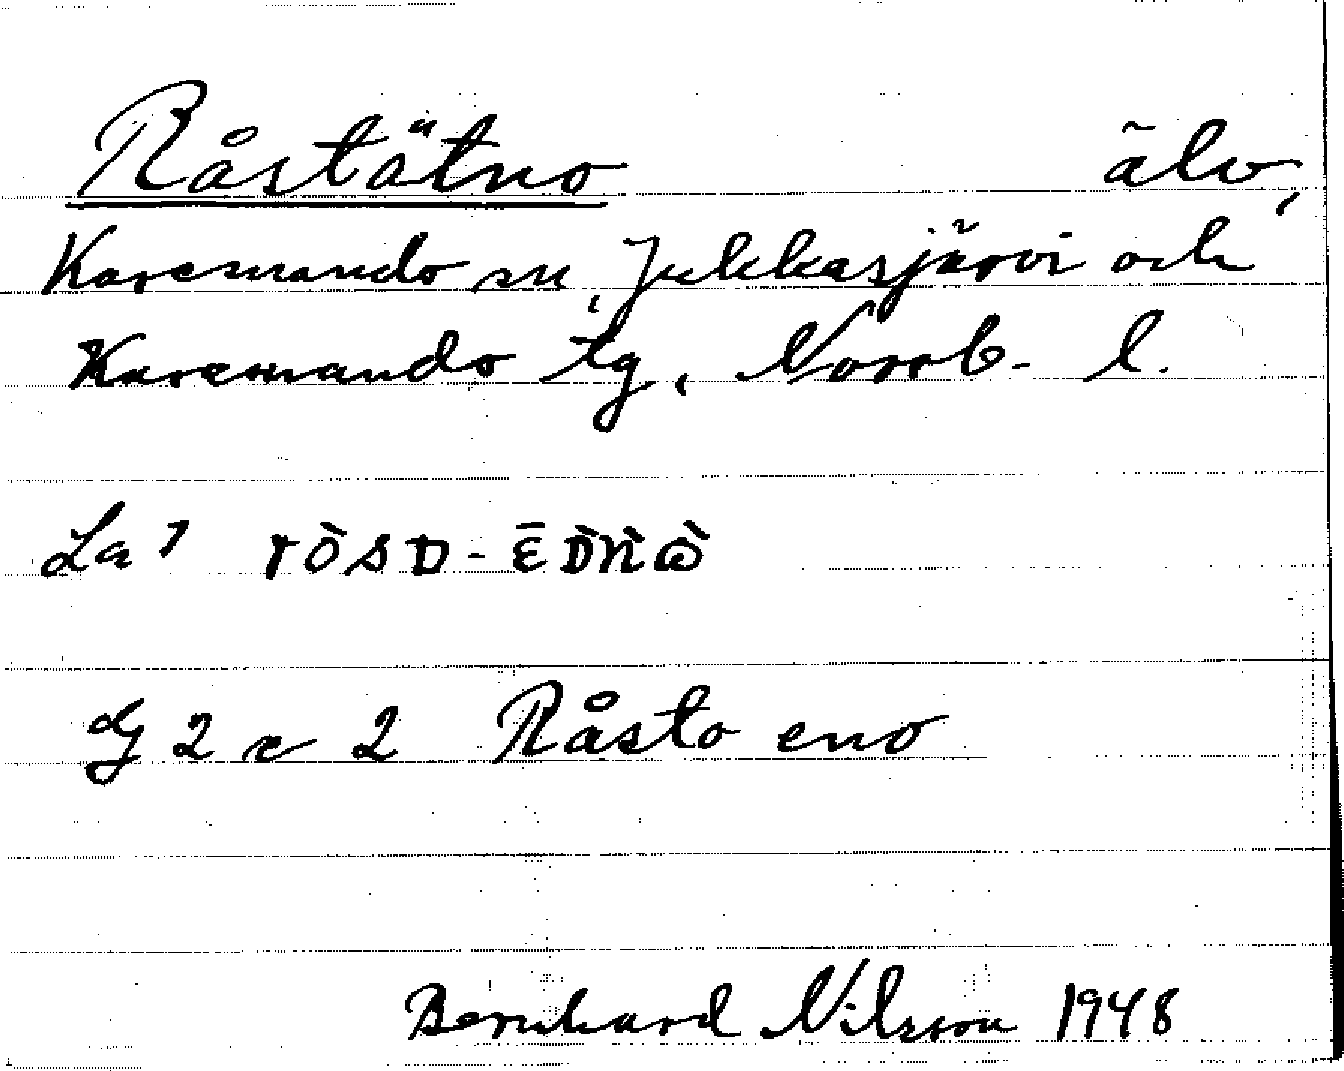 Råstätno älv,
Karesuando sn, Jukkasjärvi och
Karesuando tg, Norrb. l.
La, ròsᴅ-ēᴅ̀ǹὼ
G 2 c 2 Råsto eno
Bernhard Nilsson 1948